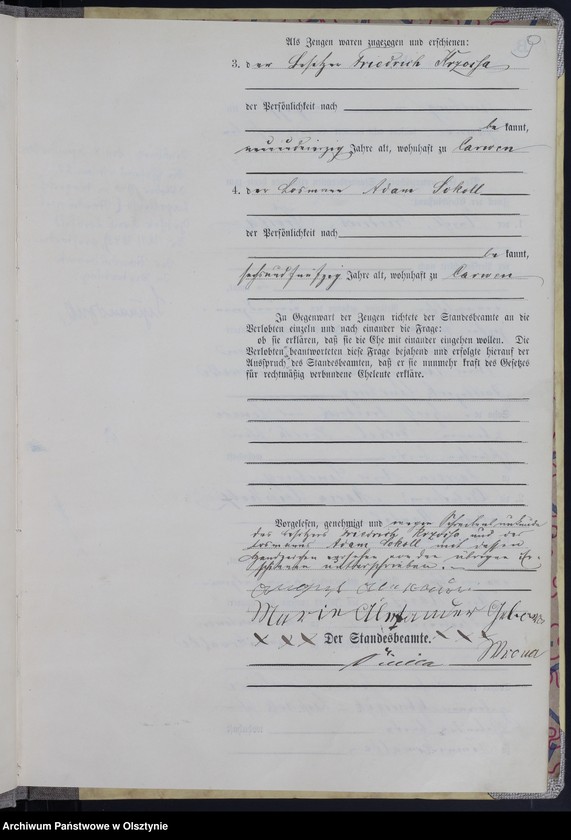 9
Als Zeugen waren zugezogen und erschienen:
3. der Besitzer Friedrich Krzossa
der Persönlichkeit nach
be kannt,
neunundvierzig Jahre alt, wohnhaft zu Carwen
4. der Losmann Adam Sokoll
der Persönlichkeit nach
be kannt,
sechsundfünfzig Jahre alt, wohnhaft zu Carwen
In Gegenwart der Zeugen richtete der Standesbeamte an die
Verlobten einzeln und nach einander die Frage:
ob sie erklären, daß sie die Ehe mit einander eingehen wollen. Die
Verlobten beantworteten diese Frage bejahend und erfolgte hierauf der
Ausspruch des Standesbeamten, daß er sie nunmehr kraft des Gesetzes
für rechtmäßig verbundene Eheleute erkläre.
Vorgelesen, genehmigt und wegen Schreibensunkunde
des Besitzers Friedrich Krzossa und des
Losmanns Adam Sokoll mit deren
Handzeichen versehen von den übrigen Er-
schienenen unterschrieben.
Marie Alexander Geb.
XXX Der Standesbeamte. XXX
Wrona
Archiwum Państwowe w Olsztynie